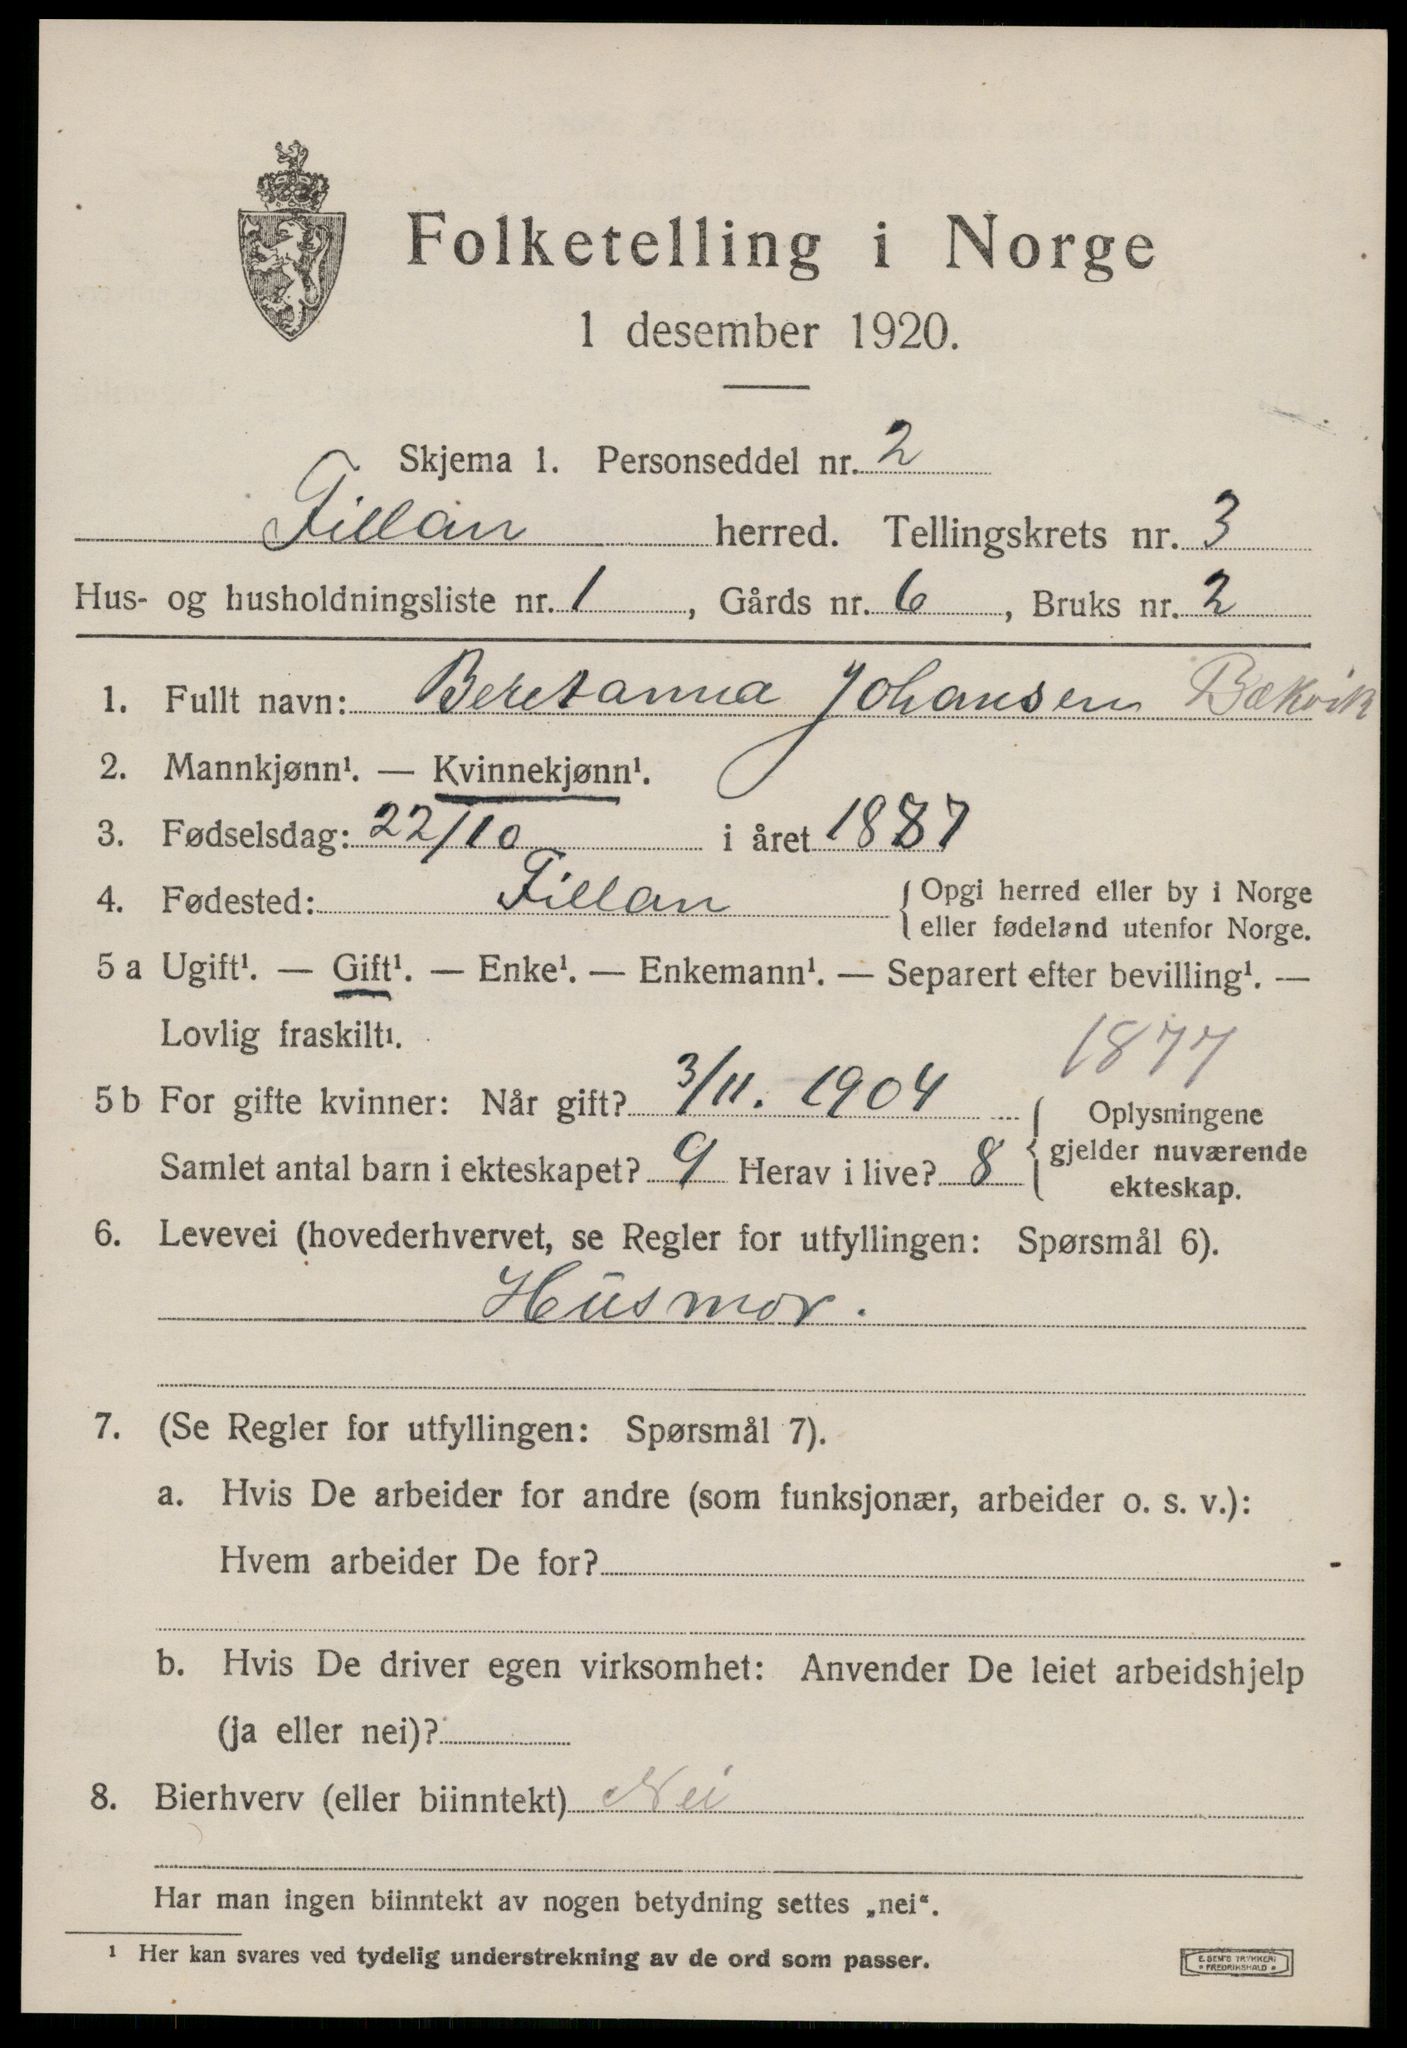 Folketelling i Norge
1 desember 1920.
Skjema 1. Personseddel nr. 2
Fillan herred. Tellingskrets nr. 3
Hus- og husholdningsliste nr. 1, Gårds nr. 6, Bruks nr. 2
1. Fullt navn: Beretanna Johansen Bækvik
2. Mannkjønn¹. — Kvinnekjønn¹.
3. Fødselsdag: 22/10 i året 1887
4. Fødested: Fillan { Opgi herred eller by i Norge
eller fødeland utenfor Norge.
5 a Ugift¹. — Gift¹. — Enke¹. — Enkemann¹. — Separert efter bevilling¹. —
Lovlig fraskilt¹.
1877
5 b For gifte kvinner: Når gift? 3/11. 1904 { Oplysningene
gjelder nuværende
ekteskap.
Samlet antal barn i ekteskapet? 9 Herav i live? 8
6. Levevei (hovederhvervet, se Regler for utfyllingen: Spørsmål 6).
Husmor.
7. (Se Regler for utfyllingen: Spørsmål 7).
a. Hvis De arbeider for andre (som funksjonær, arbeider o. s. v.):
Hvem arbeider De for?
b. Hvis De driver egen virksomhet: Anvender De leiet arbeidshjelp
(ja eller nei)?
8. Bierhverv (eller biinntekt) Nei
Har man ingen biinntekt av nogen betydning settes „nei“.
¹ Her kan svares ved tydelig understrekning av de ord som passer.
E. SEM'S TRYKKERI
FREDRIKSHALD